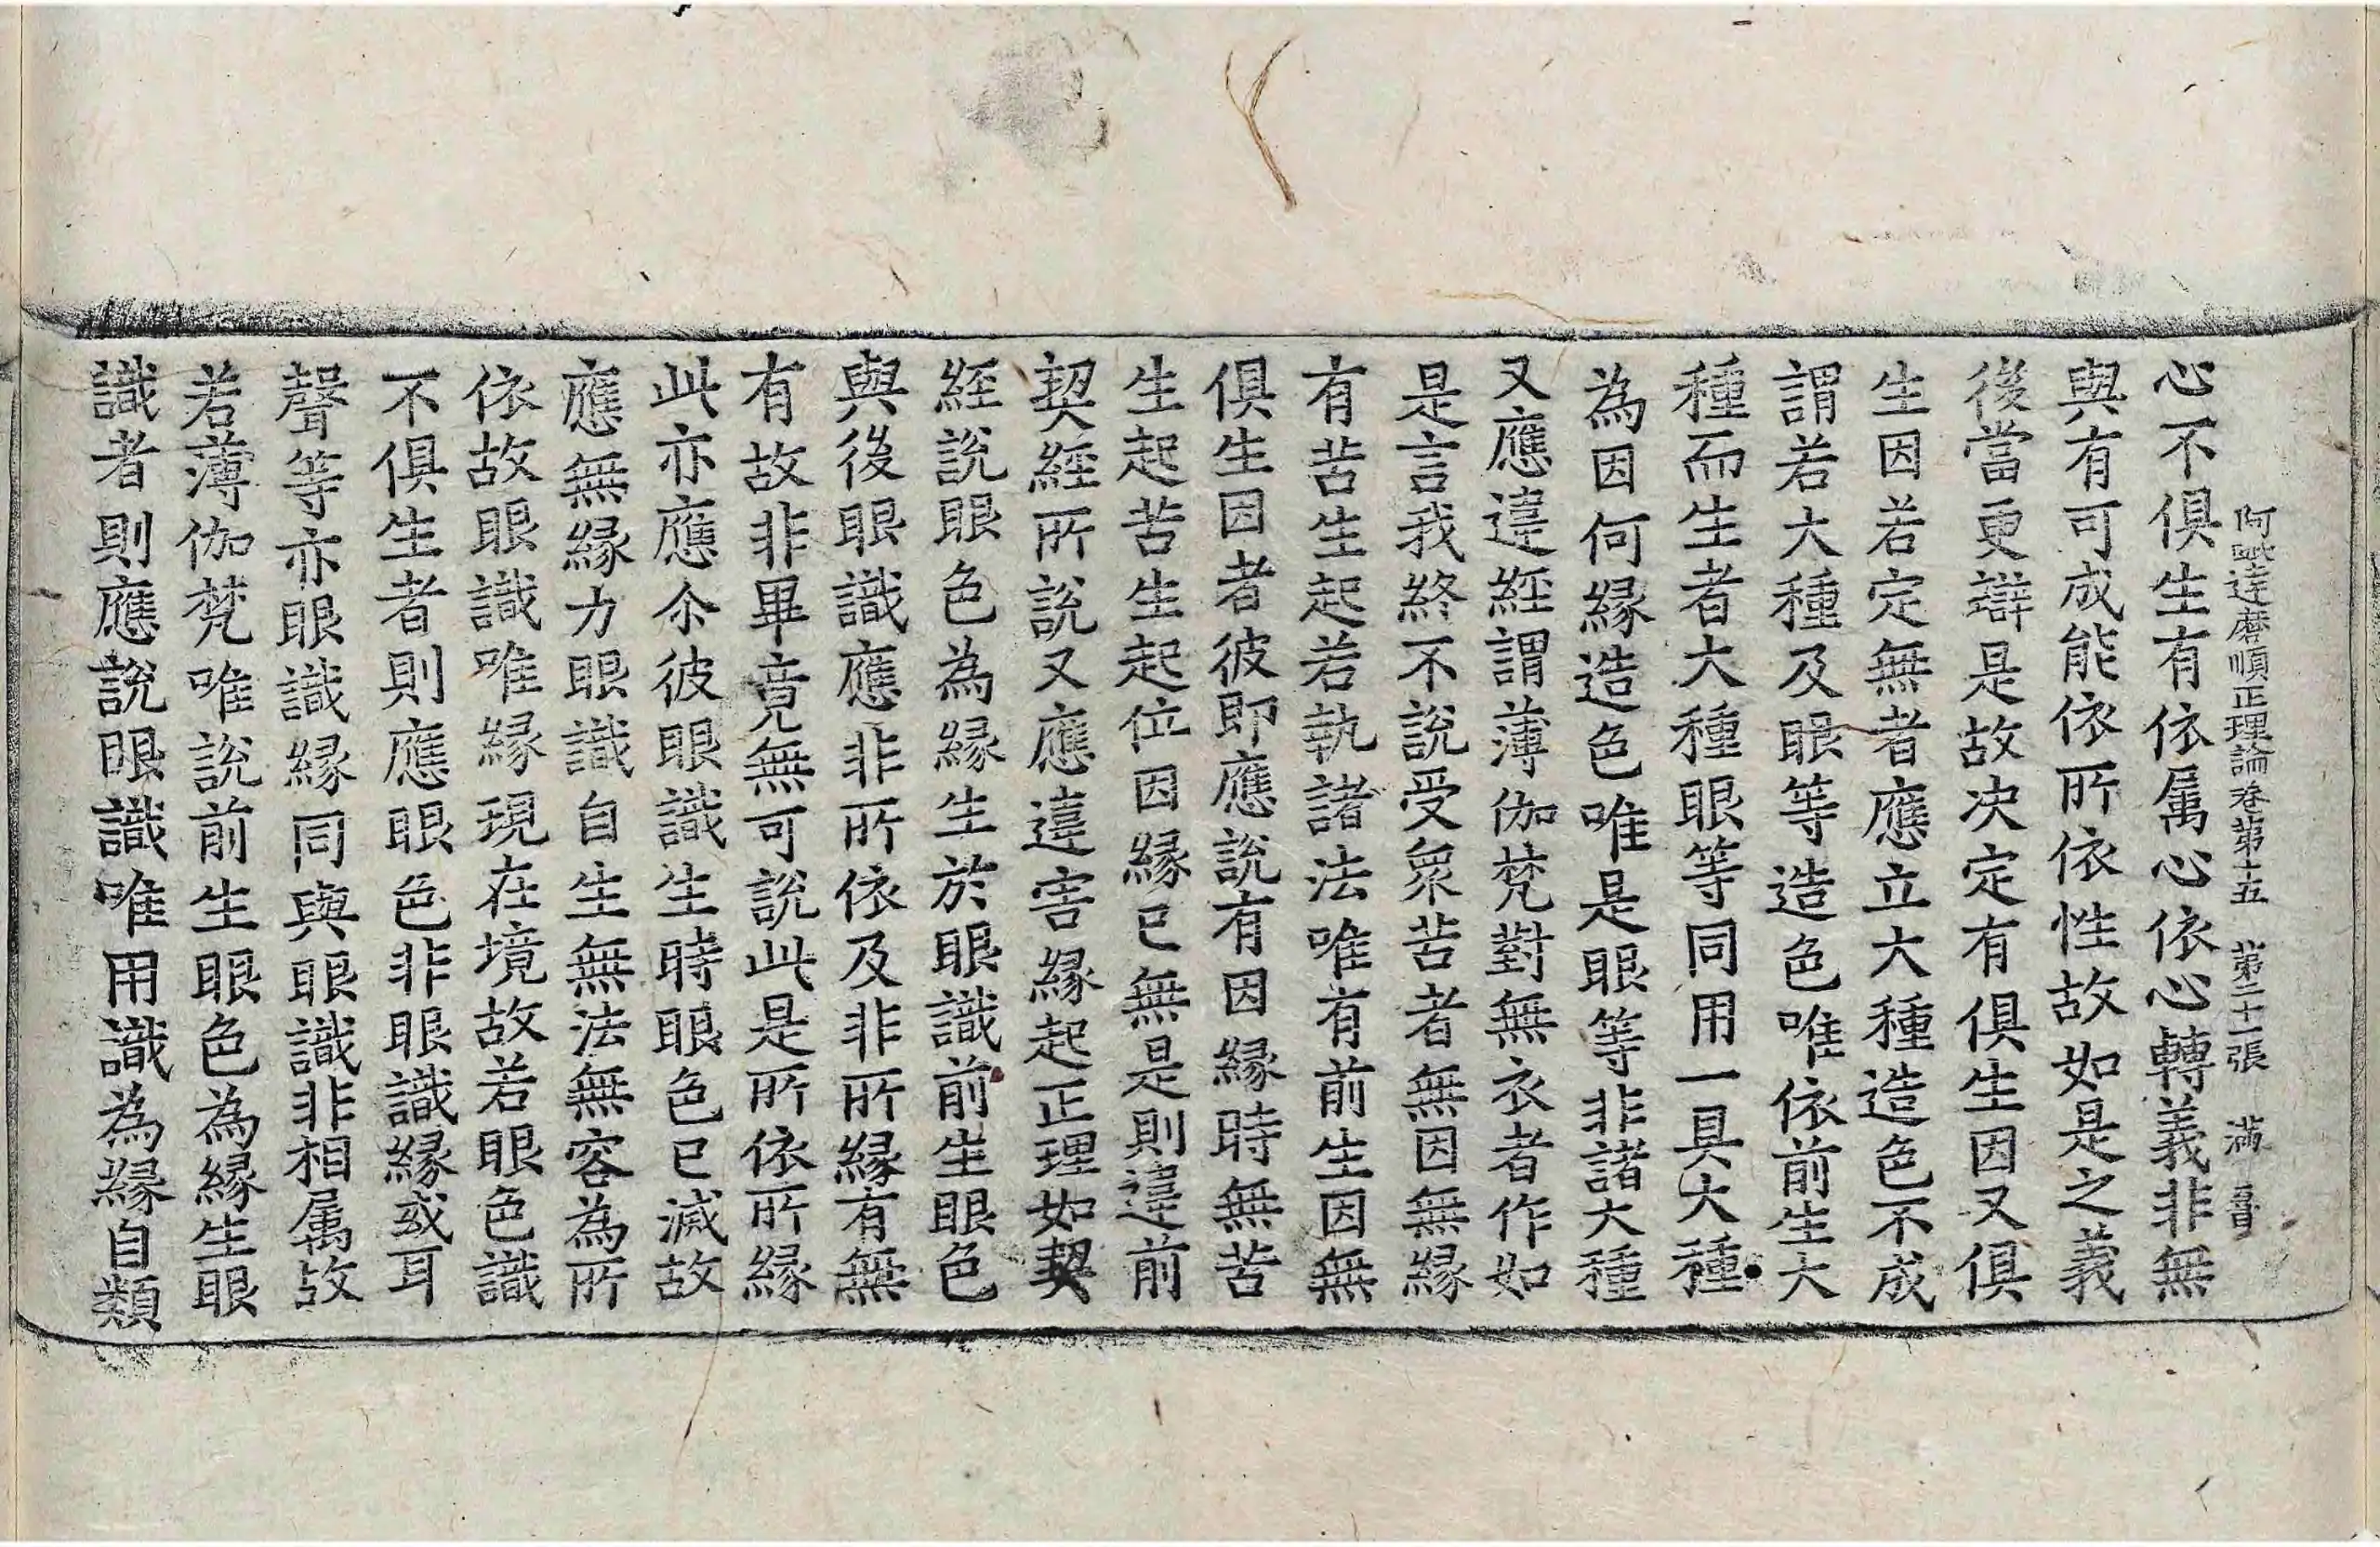 阿毗達磨順正理論卷第十五　第二十一張　満
心不俱生有依属心依心轉義非無
與有可成能依所依性故如是之義
後當更辯是故决定有俱生因又俱
生因若定無者應立大種造色不成
謂若大種及眼等造色唯依前生大
種而生者大種眼等同用一具大種
為因何縁造色唯是眼等非諸大種
又應違經謂薄伽梵對無衣者作如
是言我終不說受衆苦者無因無縁
有苦生起若執諸法唯有前生因無
俱生因者彼即應說有因縁時無苦
生起苦生起位因縁已無是則違前
契經所說又應違害縁起正理如契
經說眼色為縁生於眼識前生眼色
與後眼識應非所依及非所縁有無
有故非畢竟無可說此是所依所縁
此亦應尒彼眼識生時眼色已滅故
應無縁力眼識自生無法無容為所
依故眼識唯縁現在境故若眼色識
不俱生者則應眼色非眼識縁或耳
聲等亦眼識縁同與眼識非相属故
若薄伽梵唯說前生眼色為縁生眼
識者則應說眼識唯用識為縁自類